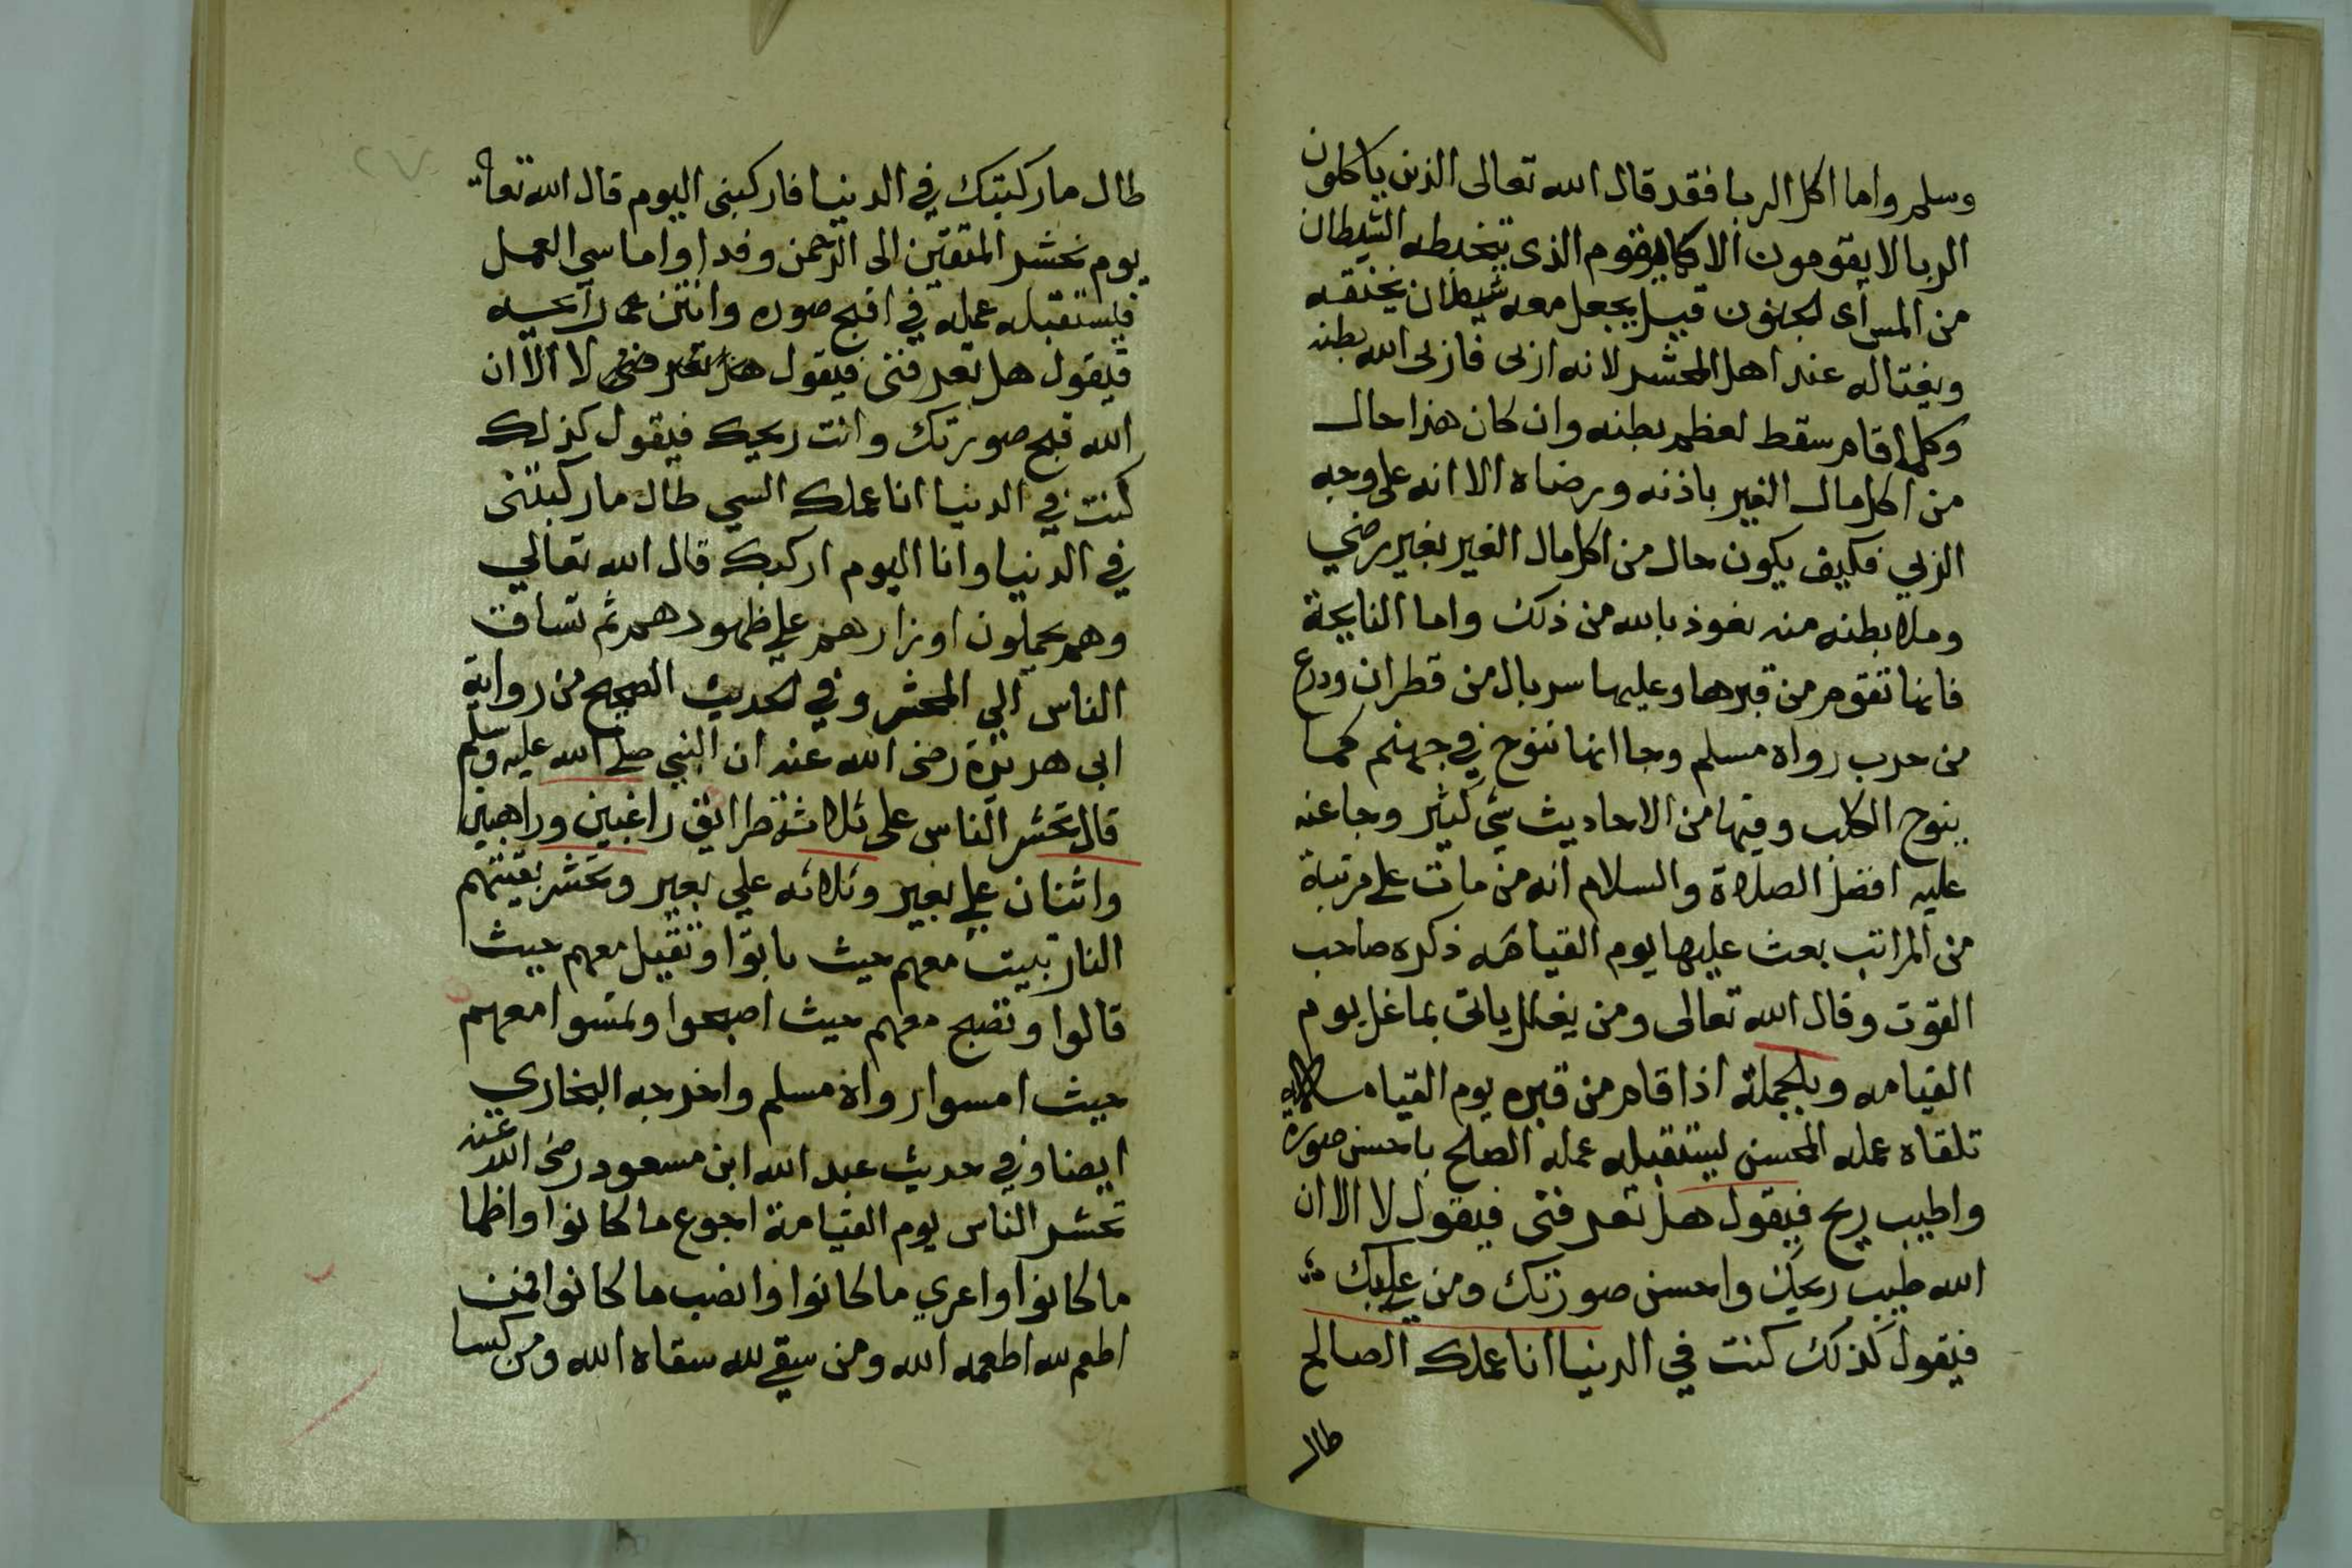 وسلم واما اكل الربا فقد قال الله تعالى الذين ياكلون
الربا لا يقومون الا كما يقوم الذى يتخبطه الشيطان
من المس اى الجنون قيل يجعل معه شيطان يخنقه
ويفتاله عند اهل المحشر لانه اربى فاربى الله بطنه
وكلما قام سقط لعظم بطنه وان كان هذا حال
من اكل مال الغير باذنه ورضاه الا انه على وجه
الربي فكيف يكون حال من اكل مال الغير بغير رضي
وملاء بطنه منه نعوذ بالله من ذلك واما النايحة
فانها تقوم من قبرها وعليها سربال من قطران ودرع
من جرب رواه مسلم وجا انها تنوح في جهنم كما
ينوح الكلب وفيها من الاحاديث شي كثير وجا عنه
عليه افضل الصلاة والسلام انه من مات على مرتبة
من المراتب بعث عليها يوم القيامه ذكره صاحب
القوت وقال الله تعالى ومن يغلل ياتى بما غل يوم
القيامه وبالجملة اذا قام من قبره يوم القيامه
تلقاه عمله المحسن ليستقبله عمله الصلح باحسن صوره
واطيب ريح فيقول هل تعرفنى فيقول لا الا ان
الله طيب ريحك واحسن صورتك ومن عليك
فيقول كذلك كنت في الدنيا انا عملك الصالح
طال
٢٧
طال ماركبتك في الدنيا فاركبنى اليوم قال الله تعا
يوم نحشر المتقين الى الرحمن وفدا واما سي العمل
فيستقبله عمله في اقبح صوره وانتن رايحيه
فيقول هل تعرفنى فيقول لا الا ان
الله قبح صورتك وانت ريحك فيقول كذلك
كنت في الدنيا انا عملك السي طال ماركبتنى
في الدنيا وانا اليوم اركبك قال الله تعالي
وهم يحملون اوزارهم علي ظهورهم ثم تساق
الناس الي المحشر وفي الحديث الصحيح من رواية
ابى هريرة رضى الله عنه ان النبي صلى الله عليه وسلم
قال يحشر الناس على ثلاثة طرائق راغبين وراهبين
واثنان علي بعير وثلاثه علي بعير وتحشر بقيتهم
النار تبيت معهم حيث باتوا وتقيل معهم حيث
قالوا وتصبح معهم حيث اصبحوا وتمسوا معهم
حيث امسوا رواه مسلم واخرجه البخاري
ايضا وفي حديث عبد الله ابن مسعود رضى الله عنه
تحشر الناس يوم القيامة اجوع ما كانوا واظما
ما كانوا واعري ما كانوا وانصب ما كانوا فمن
اطعم لله اطعمه الله ومن سقي لله سقاه الله ومن كسا